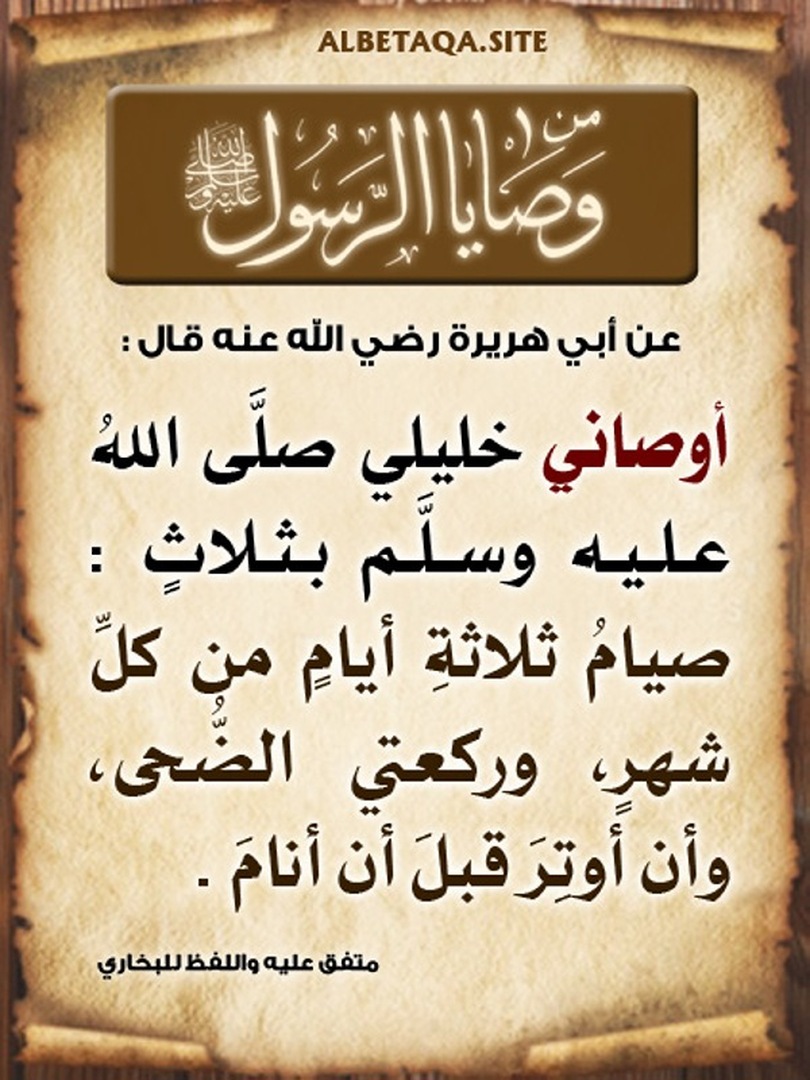 ALBETAQA.SITE
من
وَصَايَا الرَّسُولِ ﷺ
عن أبي هريرة رضي الله عنه قال :
أوصاني خليلي صلَّى اللهُ
عليه وسلَّم بثلاثٍ :
صيامُ ثلاثةِ أيامٍ من كلِّ
شهرٍ، وركعتي الضُّحى،
وأن أوتِرَ قبلَ أن أنامَ .
متفق عليه واللفظ للبخاري